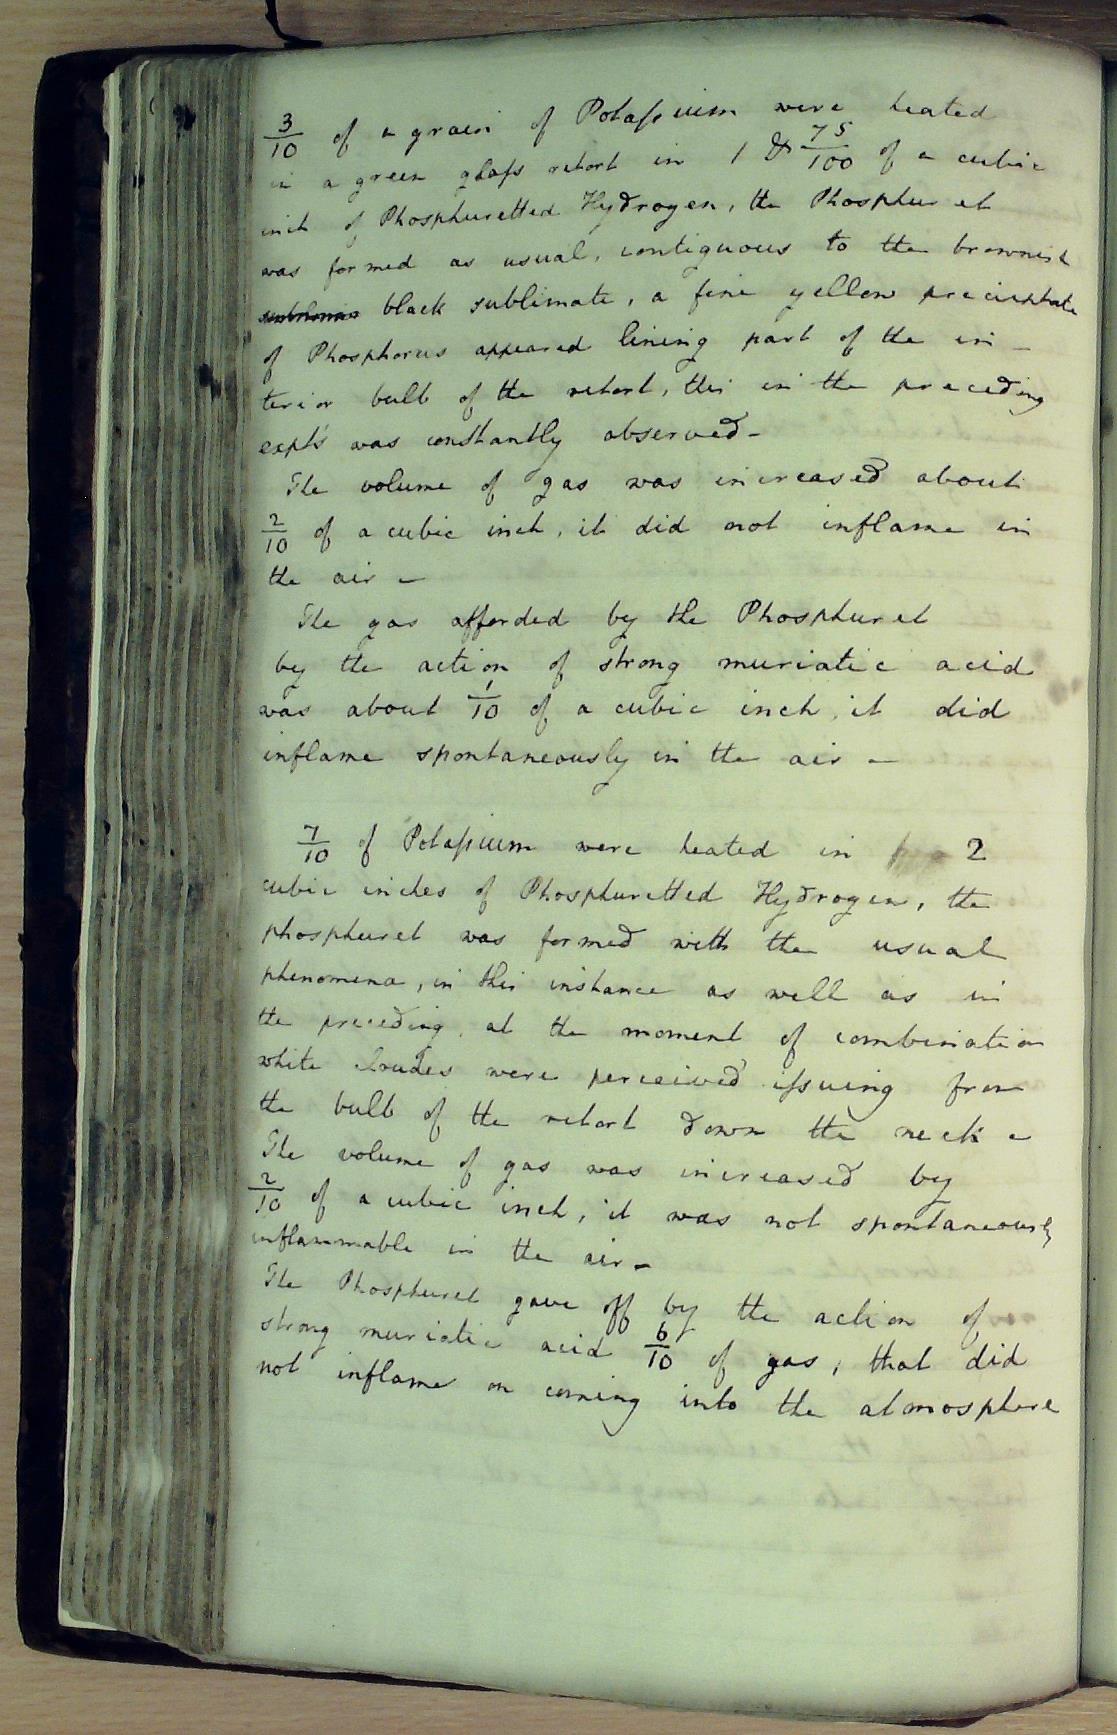 3/10 of a grain of Potassium were heated
in a green glass retort in 1 & 75/100 of a cubic
inch of Phosphuretted Hydrogen, the Phosphuret
was formed as usual, contiguous to the brownish
black sublimate, a fine yellow precipitate
of Phosphorus appeared lining part of the in-
terior bulb of the retort, this in the preceding
expts was constantly observed-
The volume of gas was increased about
2/10 of a cubic inch, it did not inflame in
the air -
The gas afforded by the Phosphuret
by the action of strong muriatic acid
was about 1/10 of a cubic inch, it did
inflame spontaneously in the air -
7/10 of Potassium were heated in 2
cubic inches of Phosphuretted Hydrogen, the
phosphuret was formed with the usual
phenomena, in this instance as well as in
the preceding, at the moment of combination
white cloudes were perceived issuing from
the bulb of the retort down the neck -
The volume of gas was increased by
2/10 of a cubic inch, it was not spontaneously
inflammable in the air -
The Phosphuret gave off by the action of
strong muriatic acid 6/10 of gas, that did
not inflame on coming into the atmosphere